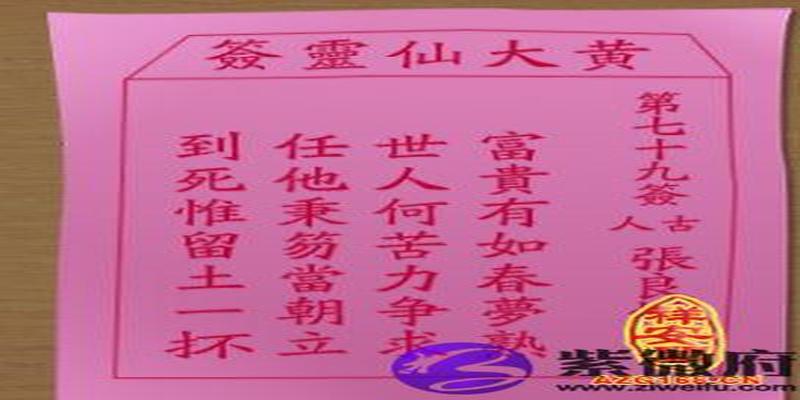 黃大仙靈簽
第七十九簽
古人
張良
富貴有如春夢熟
世人何苦力爭求
任他秉笏當朝立
到死惟留土一抔
紫微府
www.ziweifu.com
AZG168.CN